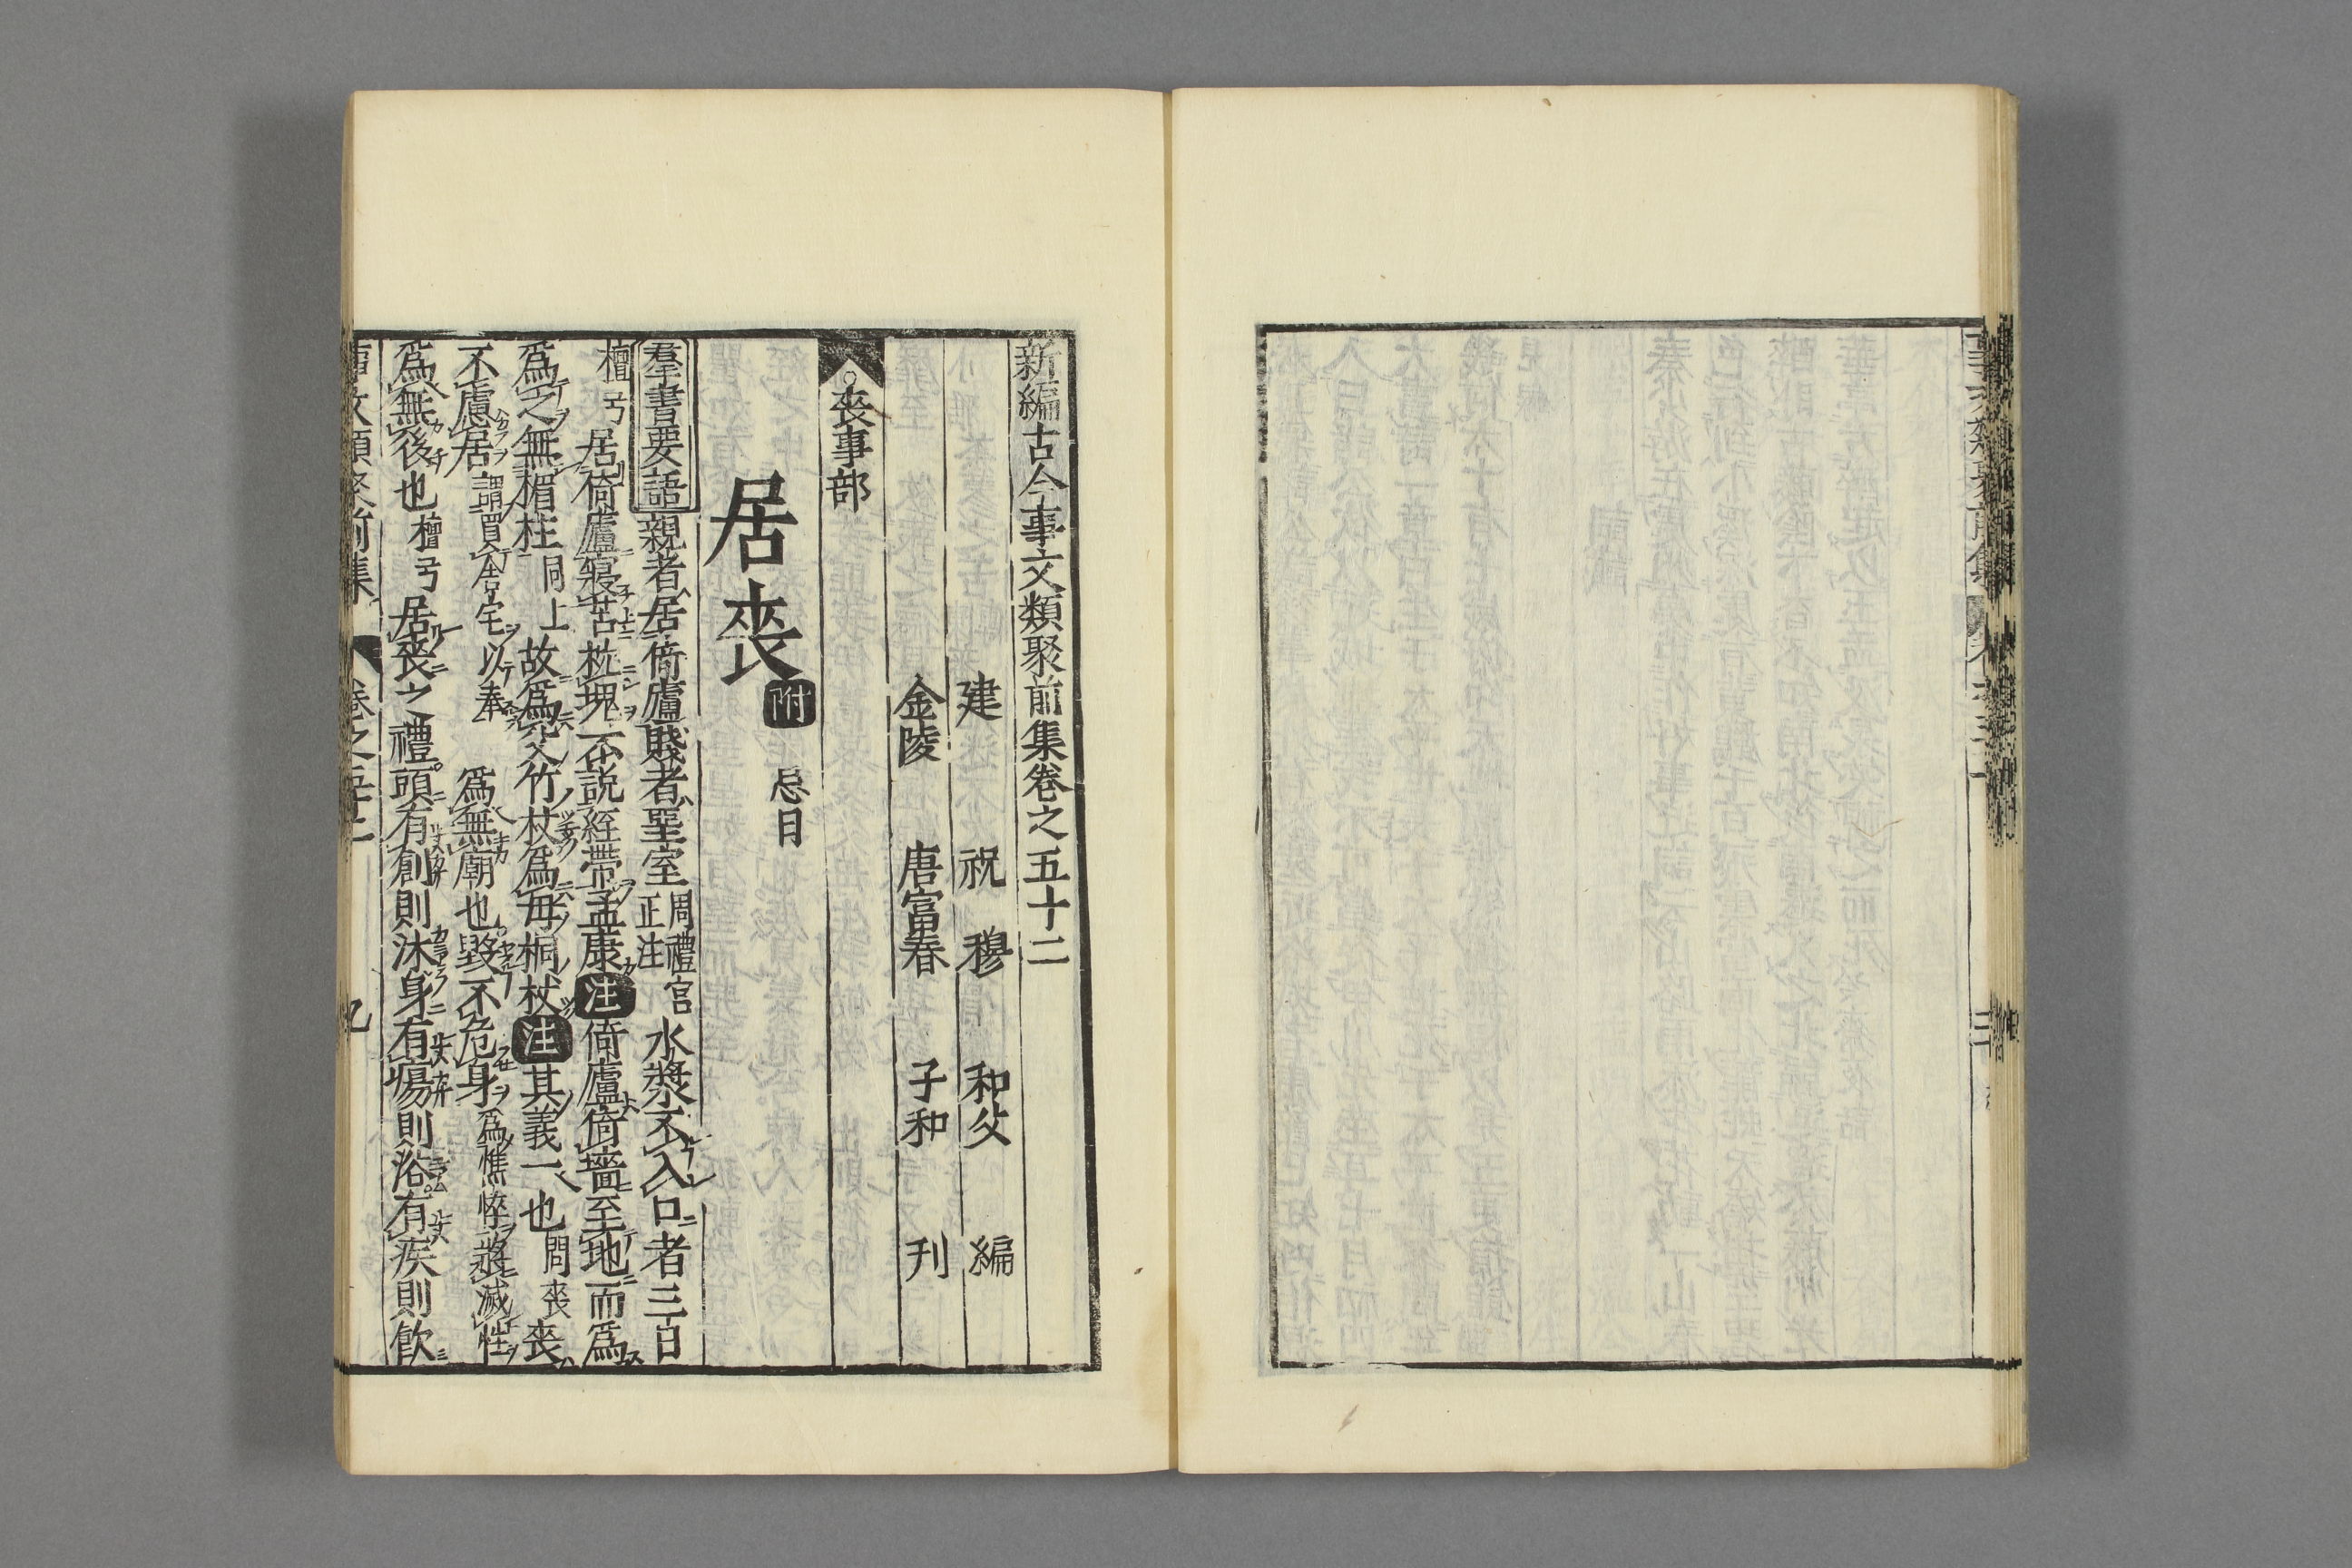 新編古今事文類聚前集卷之五十二
建 祝 穆 和父 編
金陵 唐富春 子和 刊
○喪事部
居喪 附 忌日
羣書要語 親者居倚廬賤者堊室 周禮宮正注 水漿不入口者三日
檀弓 居倚廬寢苫枕塊不說絰帶 注 倚廬倚墻至地而爲
爲之無楣柱 同上 故爲父竹杖爲母桐杖 注 其義一也 問喪 喪
不慮居 謂買舍宅以奉 爲無廟也毀不危身 爲憔悴將滅性
爲無後也 檀弓 居喪之禮頭有創則沐身有瘍則浴有疾則飲